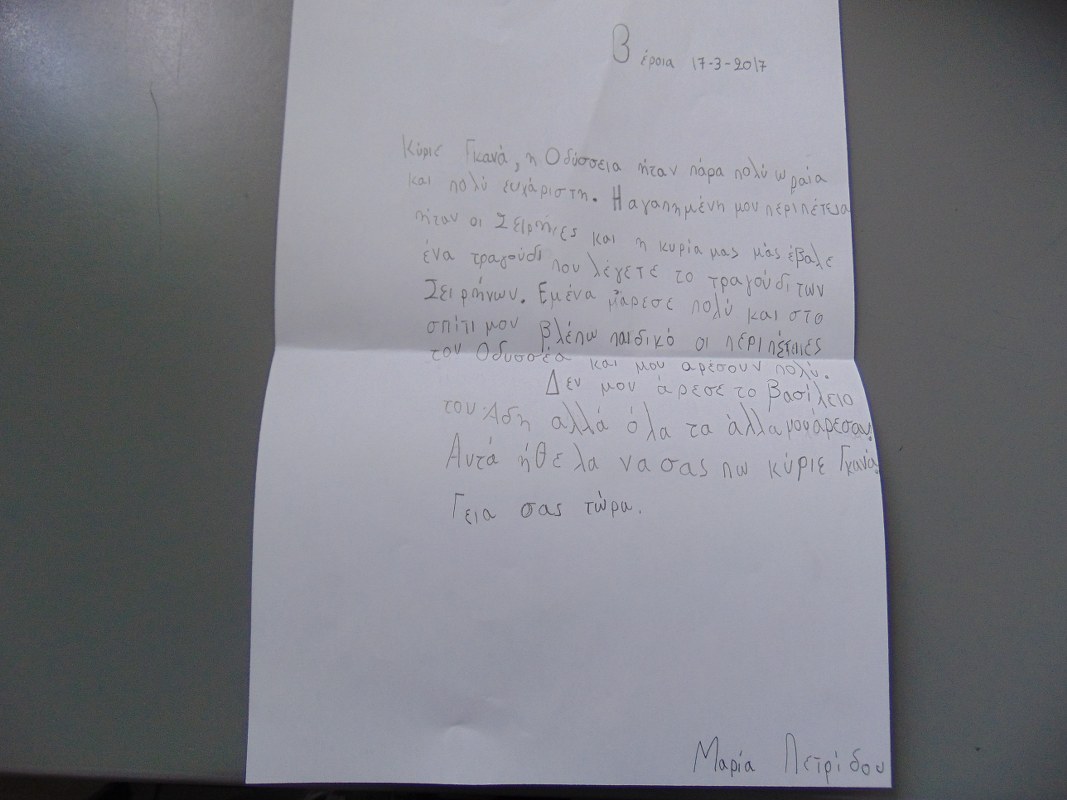 Βέροια 17-3-2017
Κύριε Γκανά, η Οδύσσεια ήταν πάρα πολύ ωραία
και πολύ ευχάριστη. Η αγαπημένη μου περιπέτεια
ήταν οι Σειρήνες και η κυρία μας μάς έβαλε
ένα τραγούδι που λέγετε το τραγούδι των
Σειρήνων. Εμένα μ'άρεσε πολύ και στο
σπίτι μου βλέπω παιδικό οι περιπέτειες
του Οδυσσέα και μου αρέσουν πολύ.
Δεν μου άρεσε το βασίλειο
του Άδη αλλά όλα τα άλλα μου άρεσαν.
Αυτά ήθελα να σας πω κύριε Γκανά.
Γεια σας τώρα.
Μαρία Πετρίδου